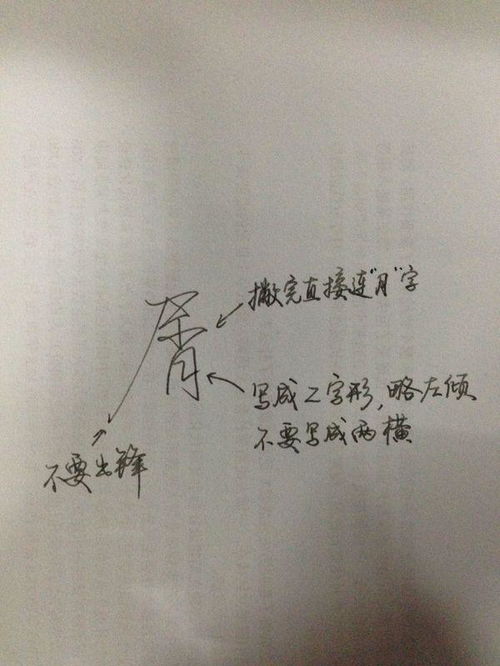 撇完直接连“月”字
屑
写成Z字形，略左倾
不要写成两横
不要出锋